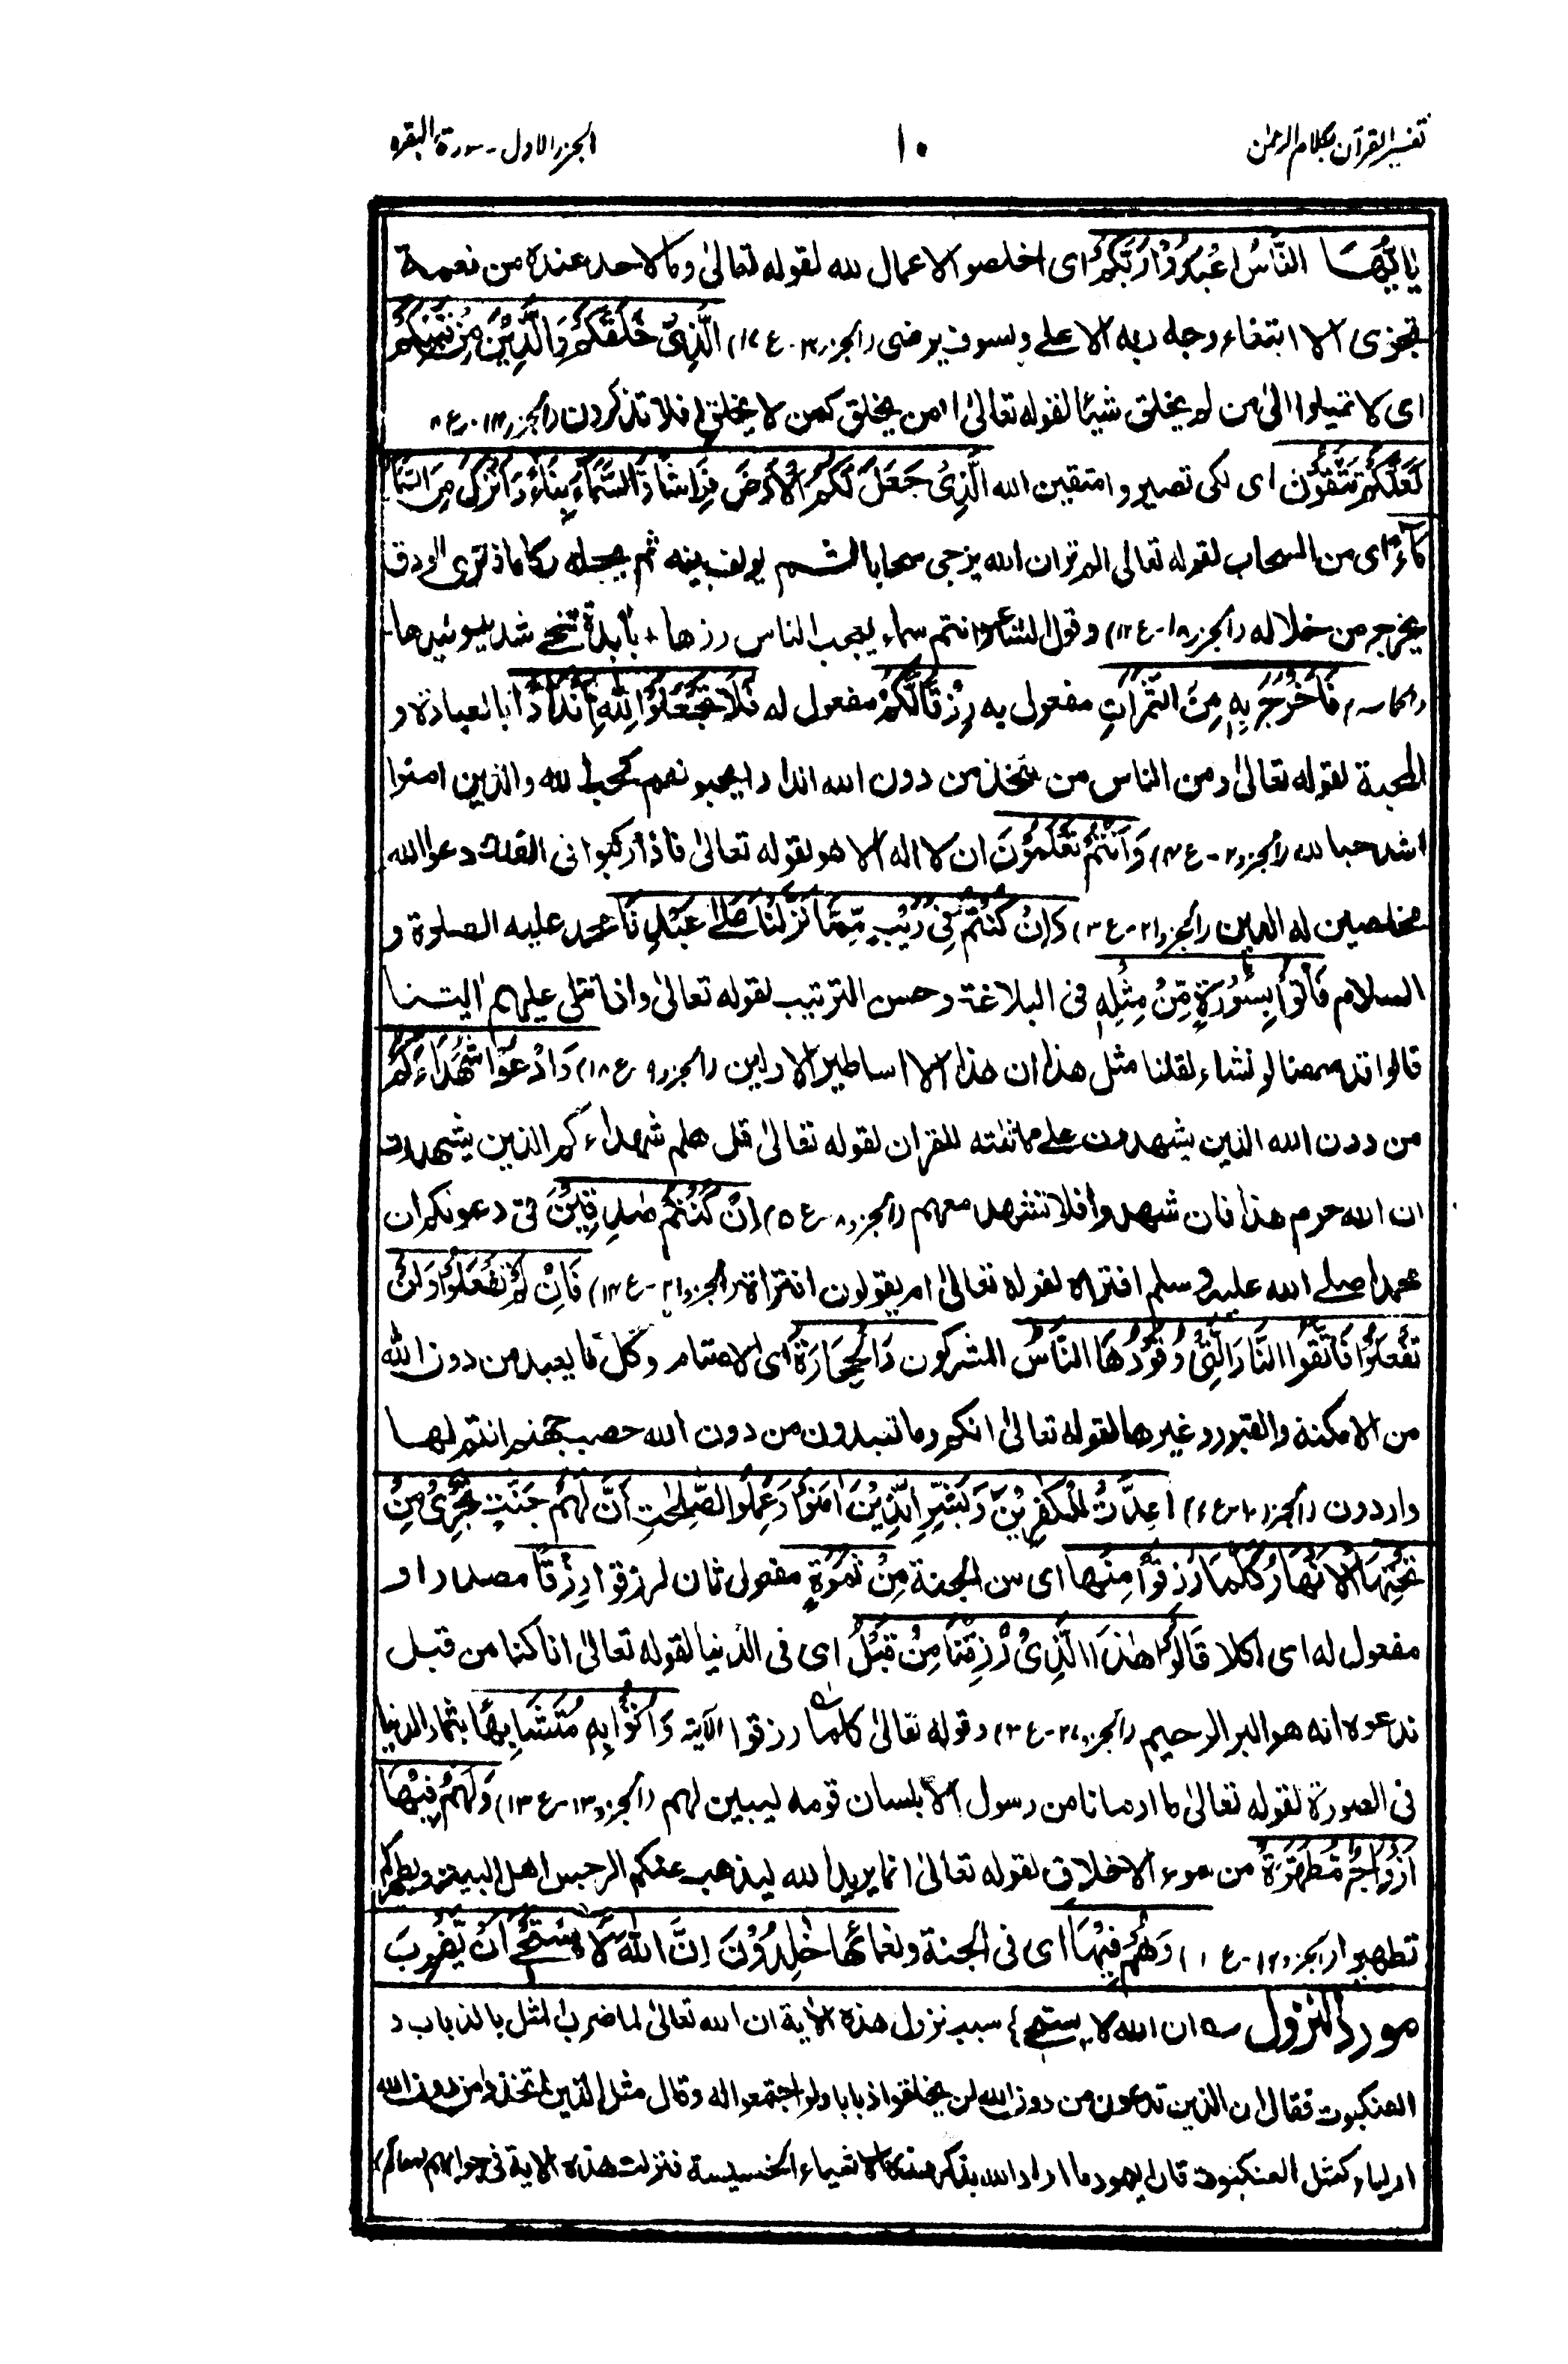 تفسير القرآن بكلام الرحمن
١٠
الجزء الاول - سورة البقره
يٰاَيُّهَا النَّاسُ اعْبُدُوْا رَبَّكُمُ اى اخلصوا الاعمال لله لقوله تعالىٰ وما لاحد عنده من نعمة
تجزى الا ابتغاء وجه ربه الاعلے ولسوف يرضى (الجزء ٣٠-ع ١٧) الَّذِىْ خَلَقَكُمْ وَالَّذِيْنَ مِنْ قَبْلِكُمْ
اى لا تميلوا الىٰ من لم يخلق شيئا لقوله تعالىٰ افمن يخلق كمن لا يخلق افلا تذكرون (الجزء ١٤-ع ٨
لَعَلَّكُمْ تَتَّقُوْنَ اى لكى تصيروا متقين الله الَّذِىْ جَعَلَ لَكُمُ الْاَرْضَ فِرَاشًا وَّالسَّمَآءَ بِنَآءً وَّاَنْزَلَ مِنَ السَّمَآءِ
مَآءً اى من السحاب لقوله تعالى الم تر ان الله يزجى سحابا ثم يولف بينه ثم يجعله ركاما فترى الودق
يخرج من خلاله (الجزء ١٨-ع ١٢) وقول الشاعر وانتم سماء يعجب الناس رزها + بأبدة تنحى شديد وئيدها
(الحماسه) فَاَخْرَجَ بِهٖ مِنَ الثَّمَرٰتِ مفعول به رِزْقًا لَّكُمْ مفعول له فَلَا تَجْعَلُوْا لِلّٰهِ اَنْدَادًا بالعبادة و
المحبة لقوله تعالىٰ ومن الناس من يتخذ من دون الله اندادا يحبونهم كحب الله والذين امنوا
اشد حبا لله (الجزء ٢-ع ٤) وَاَنْتُمْ تَعْلَمُوْنَ ان لا اله الا هو لقوله تعالىٰ فاذا ركبوا فى الفلك دعوا الله
مخلصين له الدين (الجزء ٢١-ع ٣) وَاِنْ كُنْتُمْ فِىْ رَيْبٍ مِّمَّا نَزَّلْنَا عَلٰے عَبْدِنَا محمد عليه الصلوة و
السلام فَاْتُوْا بِسُوْرَةٍ مِّنْ مِثْلِهٖ فى البلاغة وحسن الترتيب لقوله تعالىٰ واذا تتلى عليهم اٰيٰتنا
قالوا قد سمعنا لو نشاء لقلنا مثل هذا ان هذا الا اساطير الاولين (الجزء ٩-ع ١٨) وَادْعُوْا شُهَدَآءَكُمْ
من دون الله الذين يشهدون علے مماثلته للقران لقوله تعالىٰ قل هلم شهداءكم الذين يشهدون
ان الله حرم هذا فان شهدوا فلا تشهد معهم (الجزء ٨-ع ٥) اِنْ كُنْتُمْ صٰدِقِيْنَ فى دعوٰكم ان
محمدا صلے الله عليه وسلم افتراه لقوله تعالىٰ ام يقولون افتراه (الجزء ٢١-ع ١٤) فَاِنْ لَّمْ تَفْعَلُوْا وَلَنْ
تَفْعَلُوْا فَاتَّقُوا النَّارَ الَّتِىْ وَقُوْدُهَا النَّاسُ المشركون وَالْحِجَارَةُ اى الاصنام وكل ما يعبد من دون الله
من الامكنة والقبور وغيرها لقوله تعالىٰ انكم وما تعبدون من دون الله حصب جهنم انتم لها
واردون (الجزء ١٧-ع ٧) اُعِدَّتْ لِلْكٰفِرِيْنَ وَبَشِّرِ الَّذِيْنَ اٰمَنُوْا وَعَمِلُوا الصّٰلِحٰتِ اَنَّ لَهُمْ جَنّٰتٍ تَجْرِىْ مِنْ
تَحْتِهَا الْاَنْهَارُ كُلَّمَا رُزِقُوْا مِنْهَا اى من الجنة مِنْ ثَمَرَةٍ مفعول ثان لرزقوا رِزْقًا مصدر او
مفعول له اى اكلا قَالُوْا هٰذَا الَّذِىْ رُزِقْنَا مِنْ قَبْلُ اى فى الدنيا لقوله تعالىٰ انا كنا من قبل
ندعوه انه هو البر الرحيم (الجزء ٢٧-ع ٣) وقوله تعالىٰ كلما رزقوا الآية وَاُتُوْا بِهٖ مُتَشَابِهًا بثمار الدنيا
فى الصورة لقوله تعالىٰ ما ارسلنا من رسول الا بلسان قومه ليبين لهم (الجزء ١٣-ع ١٣) وَلَهُمْ فِيْهَا
اَزْوَاجٌ مُّطَهَّرَةٌ من سوء الاخلاق لقوله تعالىٰ انما يريد الله ليذهب عنكم الرجس اهل البيت ويطهركم
تطهيرا (الجزء ٢٢-ع ١) وَهُمْ فِيْهَا اى فى الجنة ونعمائها خٰلِدُوْنَ اِنَّ اللّٰهَ لَا يَسْتَحْىٖ اَنْ يَّضْرِبَ
مورد النزول ان الله لا يستحى} سبب نزول هذه الاٰية ان الله تعالىٰ لما ضرب المثل بالذباب و
العنكبوت فقال ان الذين تدعون من دون الله لن يخلقوا ذبابا ولو اجتمعوا له وقال مثل الذين اتخذوا من دون الله
اولياء كمثل العنكبوت قال اليهود ما اراد الله بذكر هذه الاشياء الخسيسة فنزلت هذه الاية فى جوابهم (معالم)